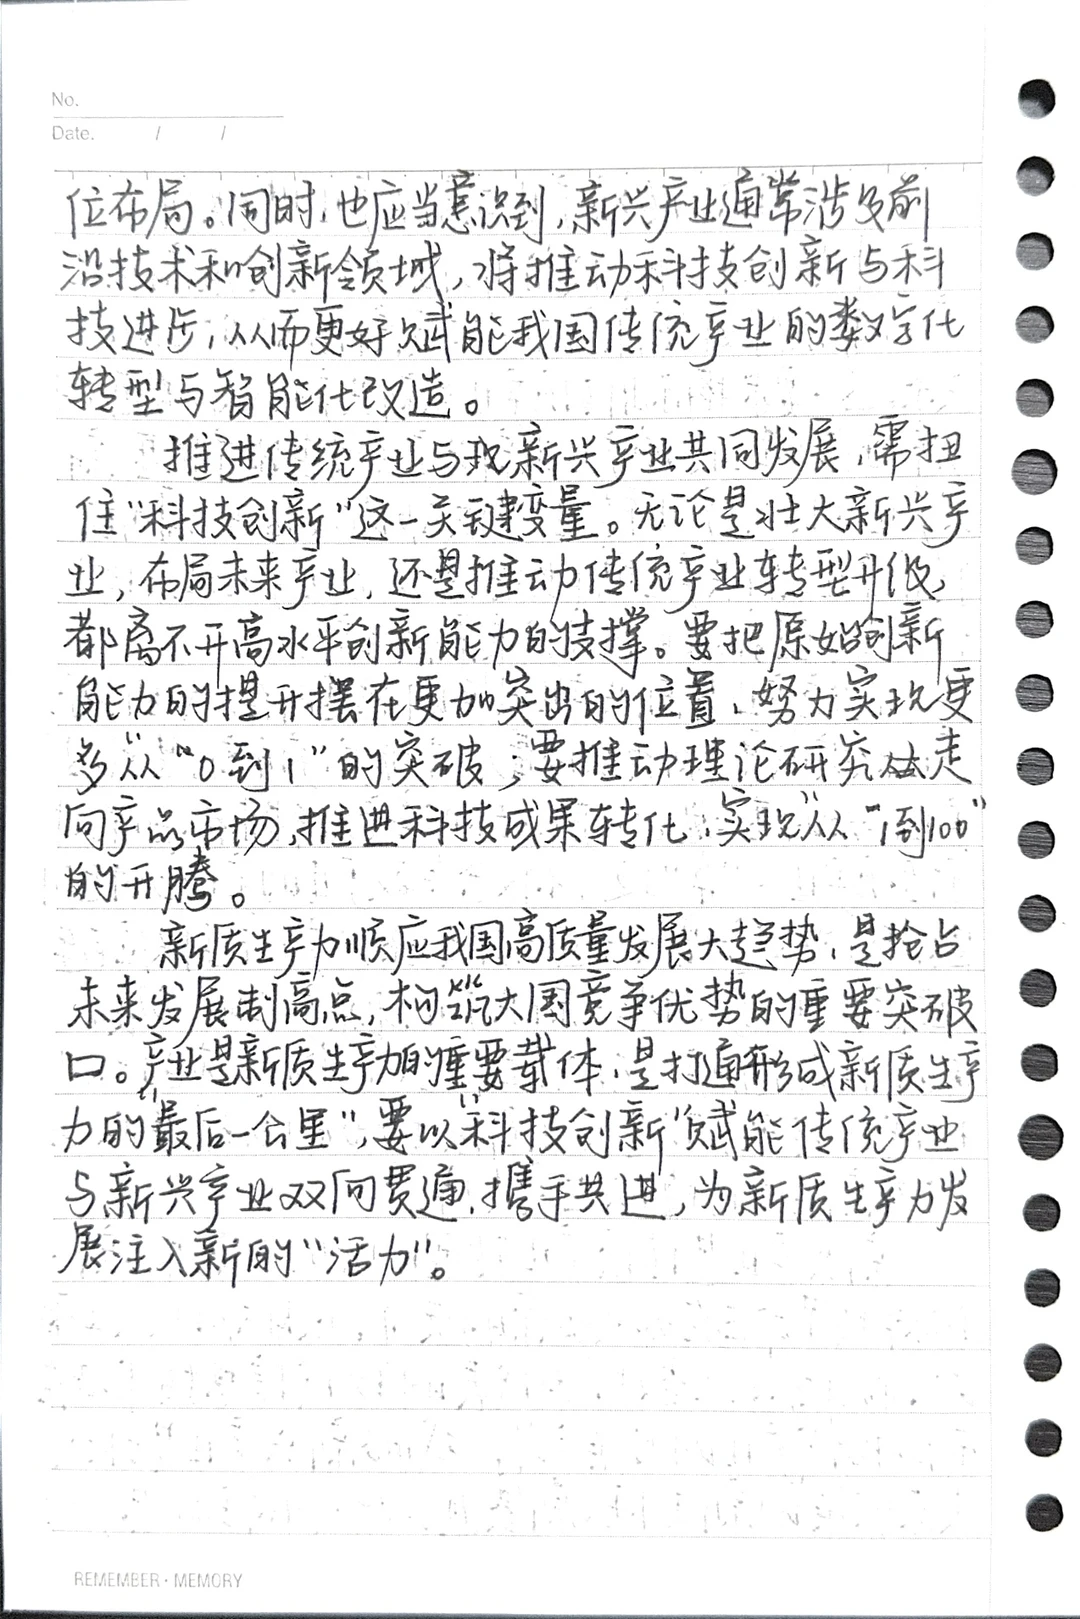 No.
Date. / /
位布局。同时,也应当意识到,新兴产业通常涉及前
沿技术和创新领域,将推动科技创新与科
技进步,从而更好赋能我国传统产业的数字化
转型与智能化改造。
推进传统产业与我新兴产业共同发展,需扭
住“科技创新”这一关键变量。无论是壮大新兴产
业,布局未来产业,还是推动传统产业转型升级,
都离不开高水平创新能力的支撑。要把原始创新
能力的提升摆在更加突出的位置,努力实现更
多“从“0到1”的突破;要推动理论研究走
向产品市场,推进科技成果转化,实现“从“1到100”
的升腾。
新质生产力顺应我国高质量发展大趋势,是抢占
未来发展制高点,构筑大国竞争优势的重要突破
口。产业是新质生产力的重要载体,是打通形成新质生产
力的“最后一公里”,要以“科技创新”赋能传统产业
与新兴产业双向贯通,携手共进,为新质生产力发
展注入新的“活力”。
REMEMBER·MEMORY